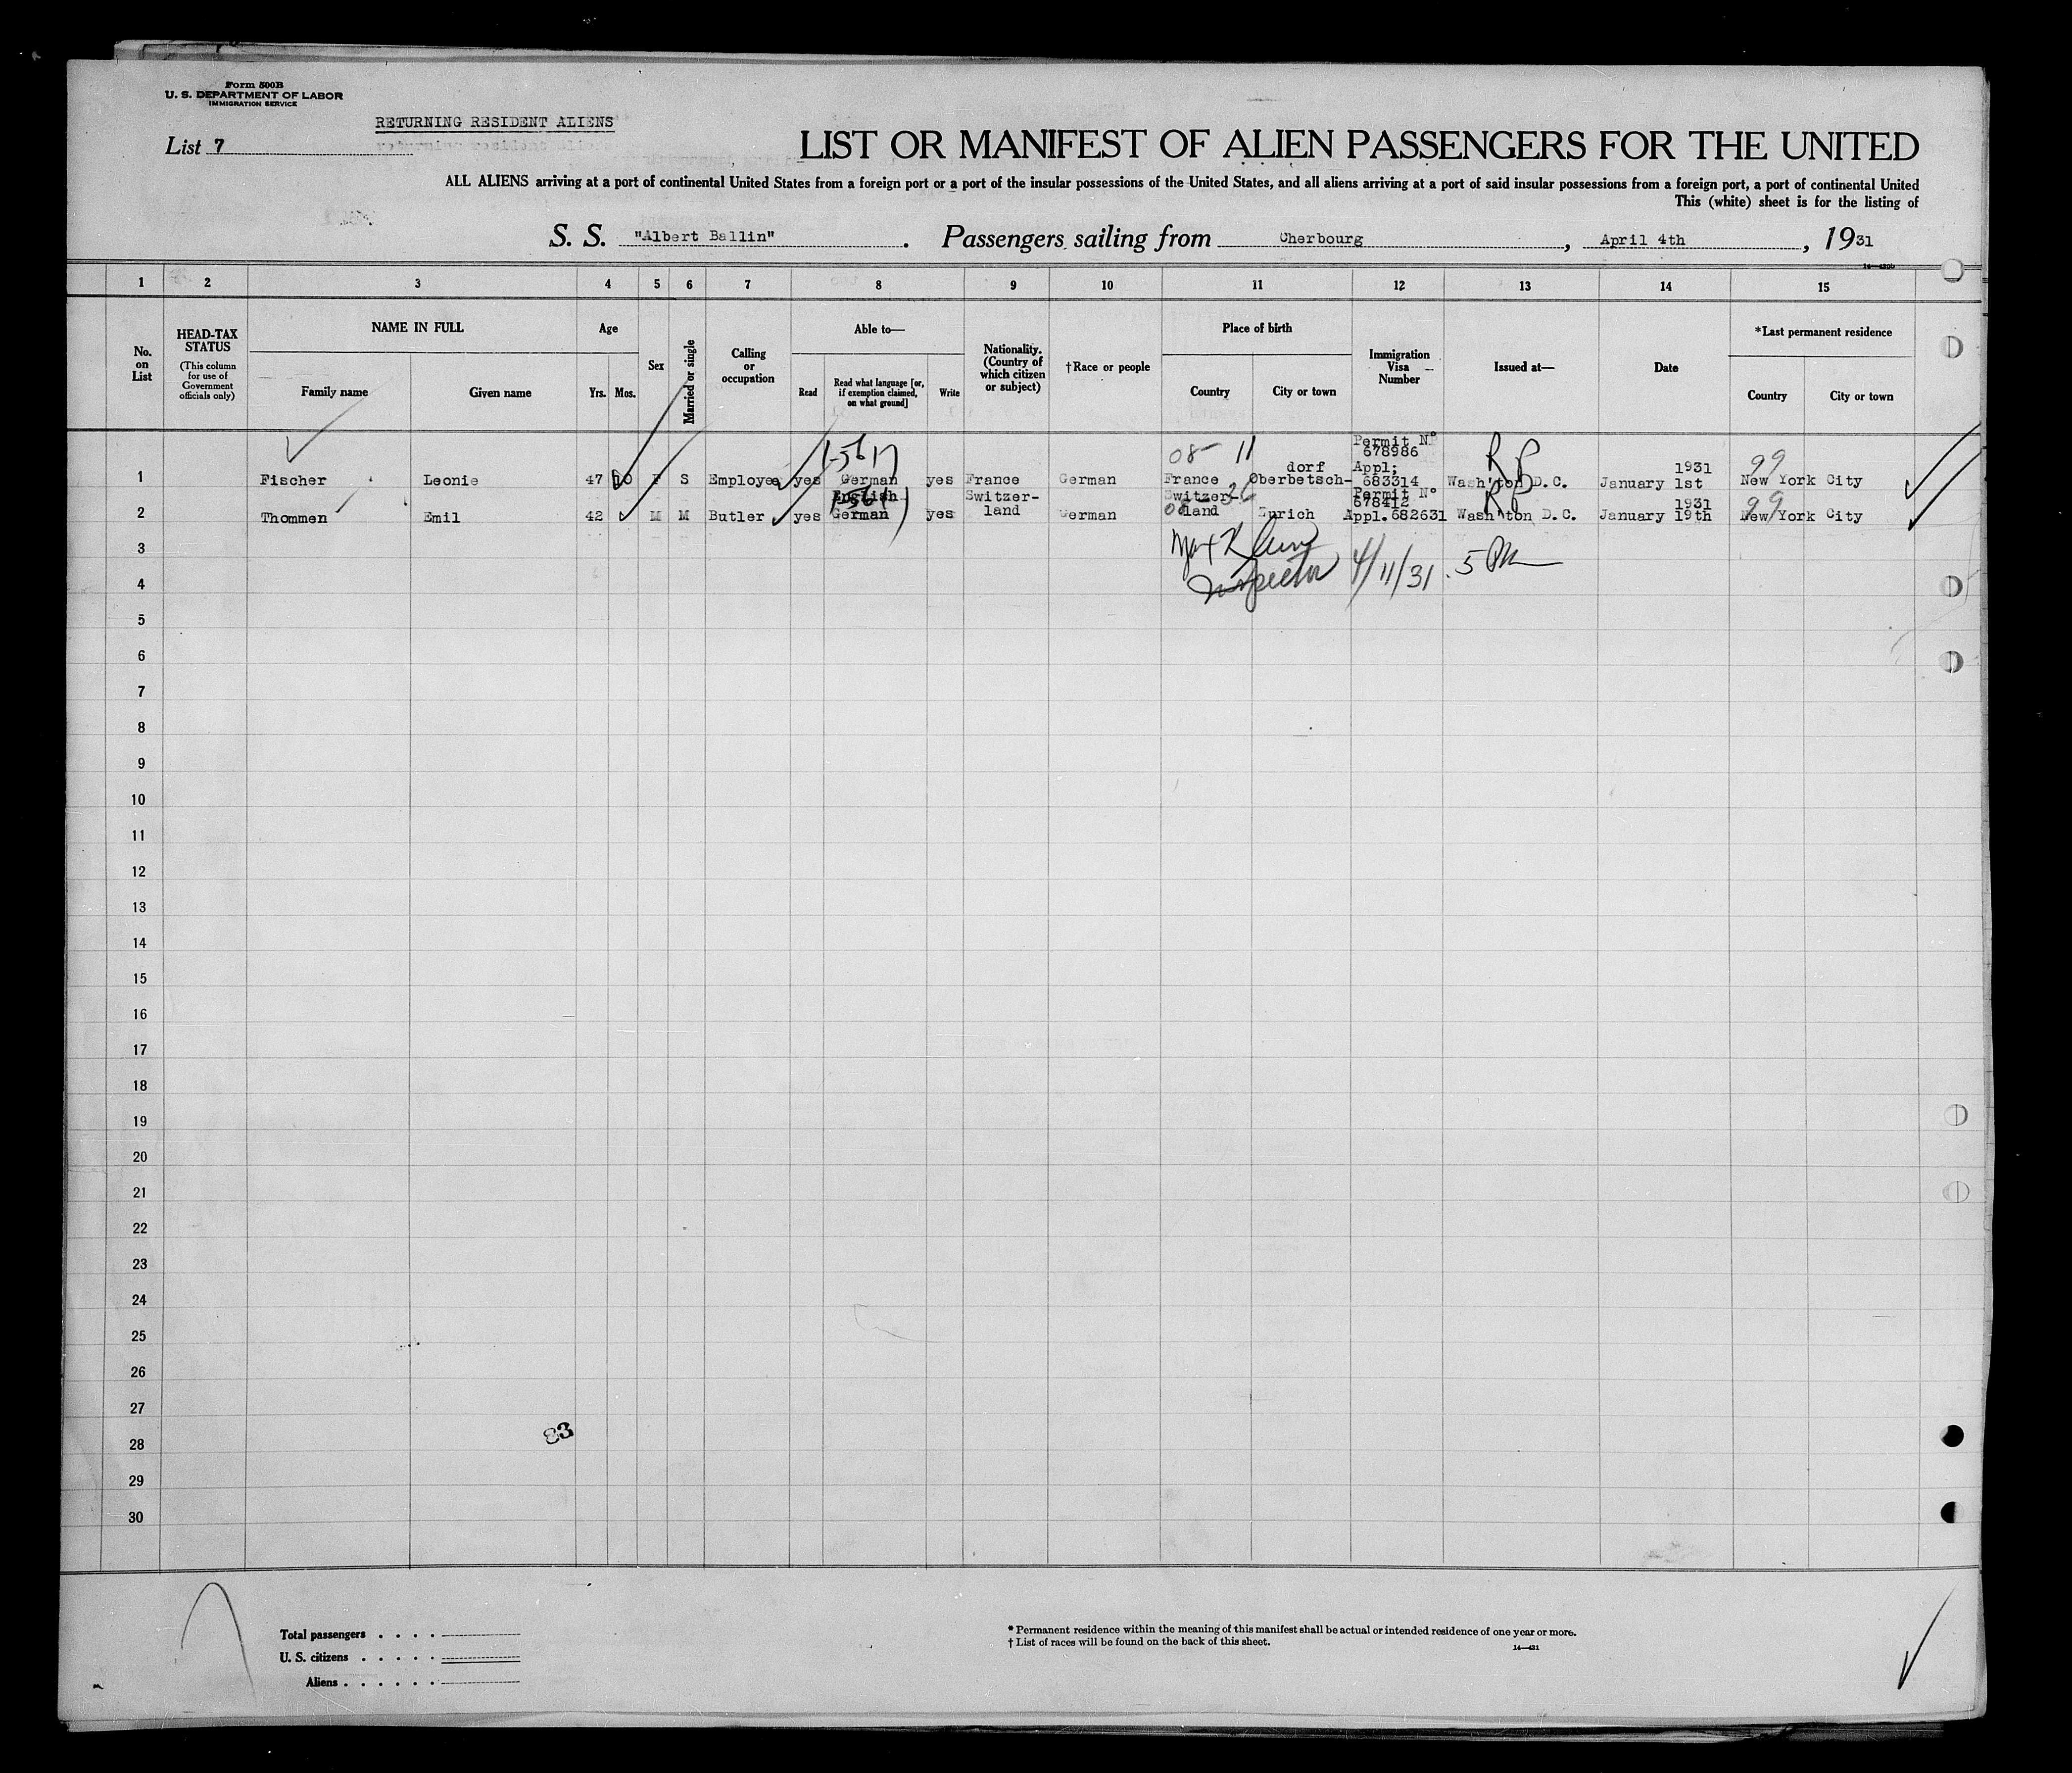 Form 500B
U. S. DEPARTMENT OF LABOR
IMMIGRATION SERVICE
RETURNING RESIDENT ALIENS
List 7
LIST OR MANIFEST OF ALIEN PASSENGERS FOR THE UNITED
ALL ALIENS arriving at a port of continental United States from a foreign port or a port of the insular possessions of the United States, and all aliens arriving at a port of said insular possessions from a foreign port, a port of continental United
This (white) sheet is for the listing of
S. S. "Albert Ballin". Passengers sailing from Cherbourg, April 4th, 1931
1 2 3 4 5 6 7 8 9 10 11 12 13 14 15
No. on List
HEAD-TAX STATUS
(This column for use of Government officials only)
NAME IN FULL
Family name Given name
Age
Yrs. Mos.
Sex
Married or single
Calling or occupation
Able to—
Read
Read what language [or, if exemption claimed, on what ground]
Write
Nationality. (Country of which citizen or subject)
†Race or people
Place of birth
Country City or town
Immigration Visa Number
Issued at—
Date
*Last permanent residence
Country City or town
08 11 Permit N° 678986 R P 99
1 Fischer Leonie 47 10 F S Employee yes German yes France German France Oberbetsch-dorf Appl; 683314 Wash'ton D.C. January 1st 1931 New York City
2 Thommen Emil 42 M M Butler yes English German yes Switzer-land German Switzer-land Zurich Permit N° 678412 Appl. 682631 Wash'ton D.C. January 19th 1931 New York City
R P 99
3
Inspector 4/11/31
4
5
6
7
8
9
10
11
12
13
14
15
16
17
18
19
20
21
22
23
24
25
26
27
83
28
29
30
Total passengers
U. S. citizens
Aliens
* Permanent residence within the meaning of this manifest shall be actual or intended residence of one year or more.
† List of races will be found on the back of this sheet.
14—431